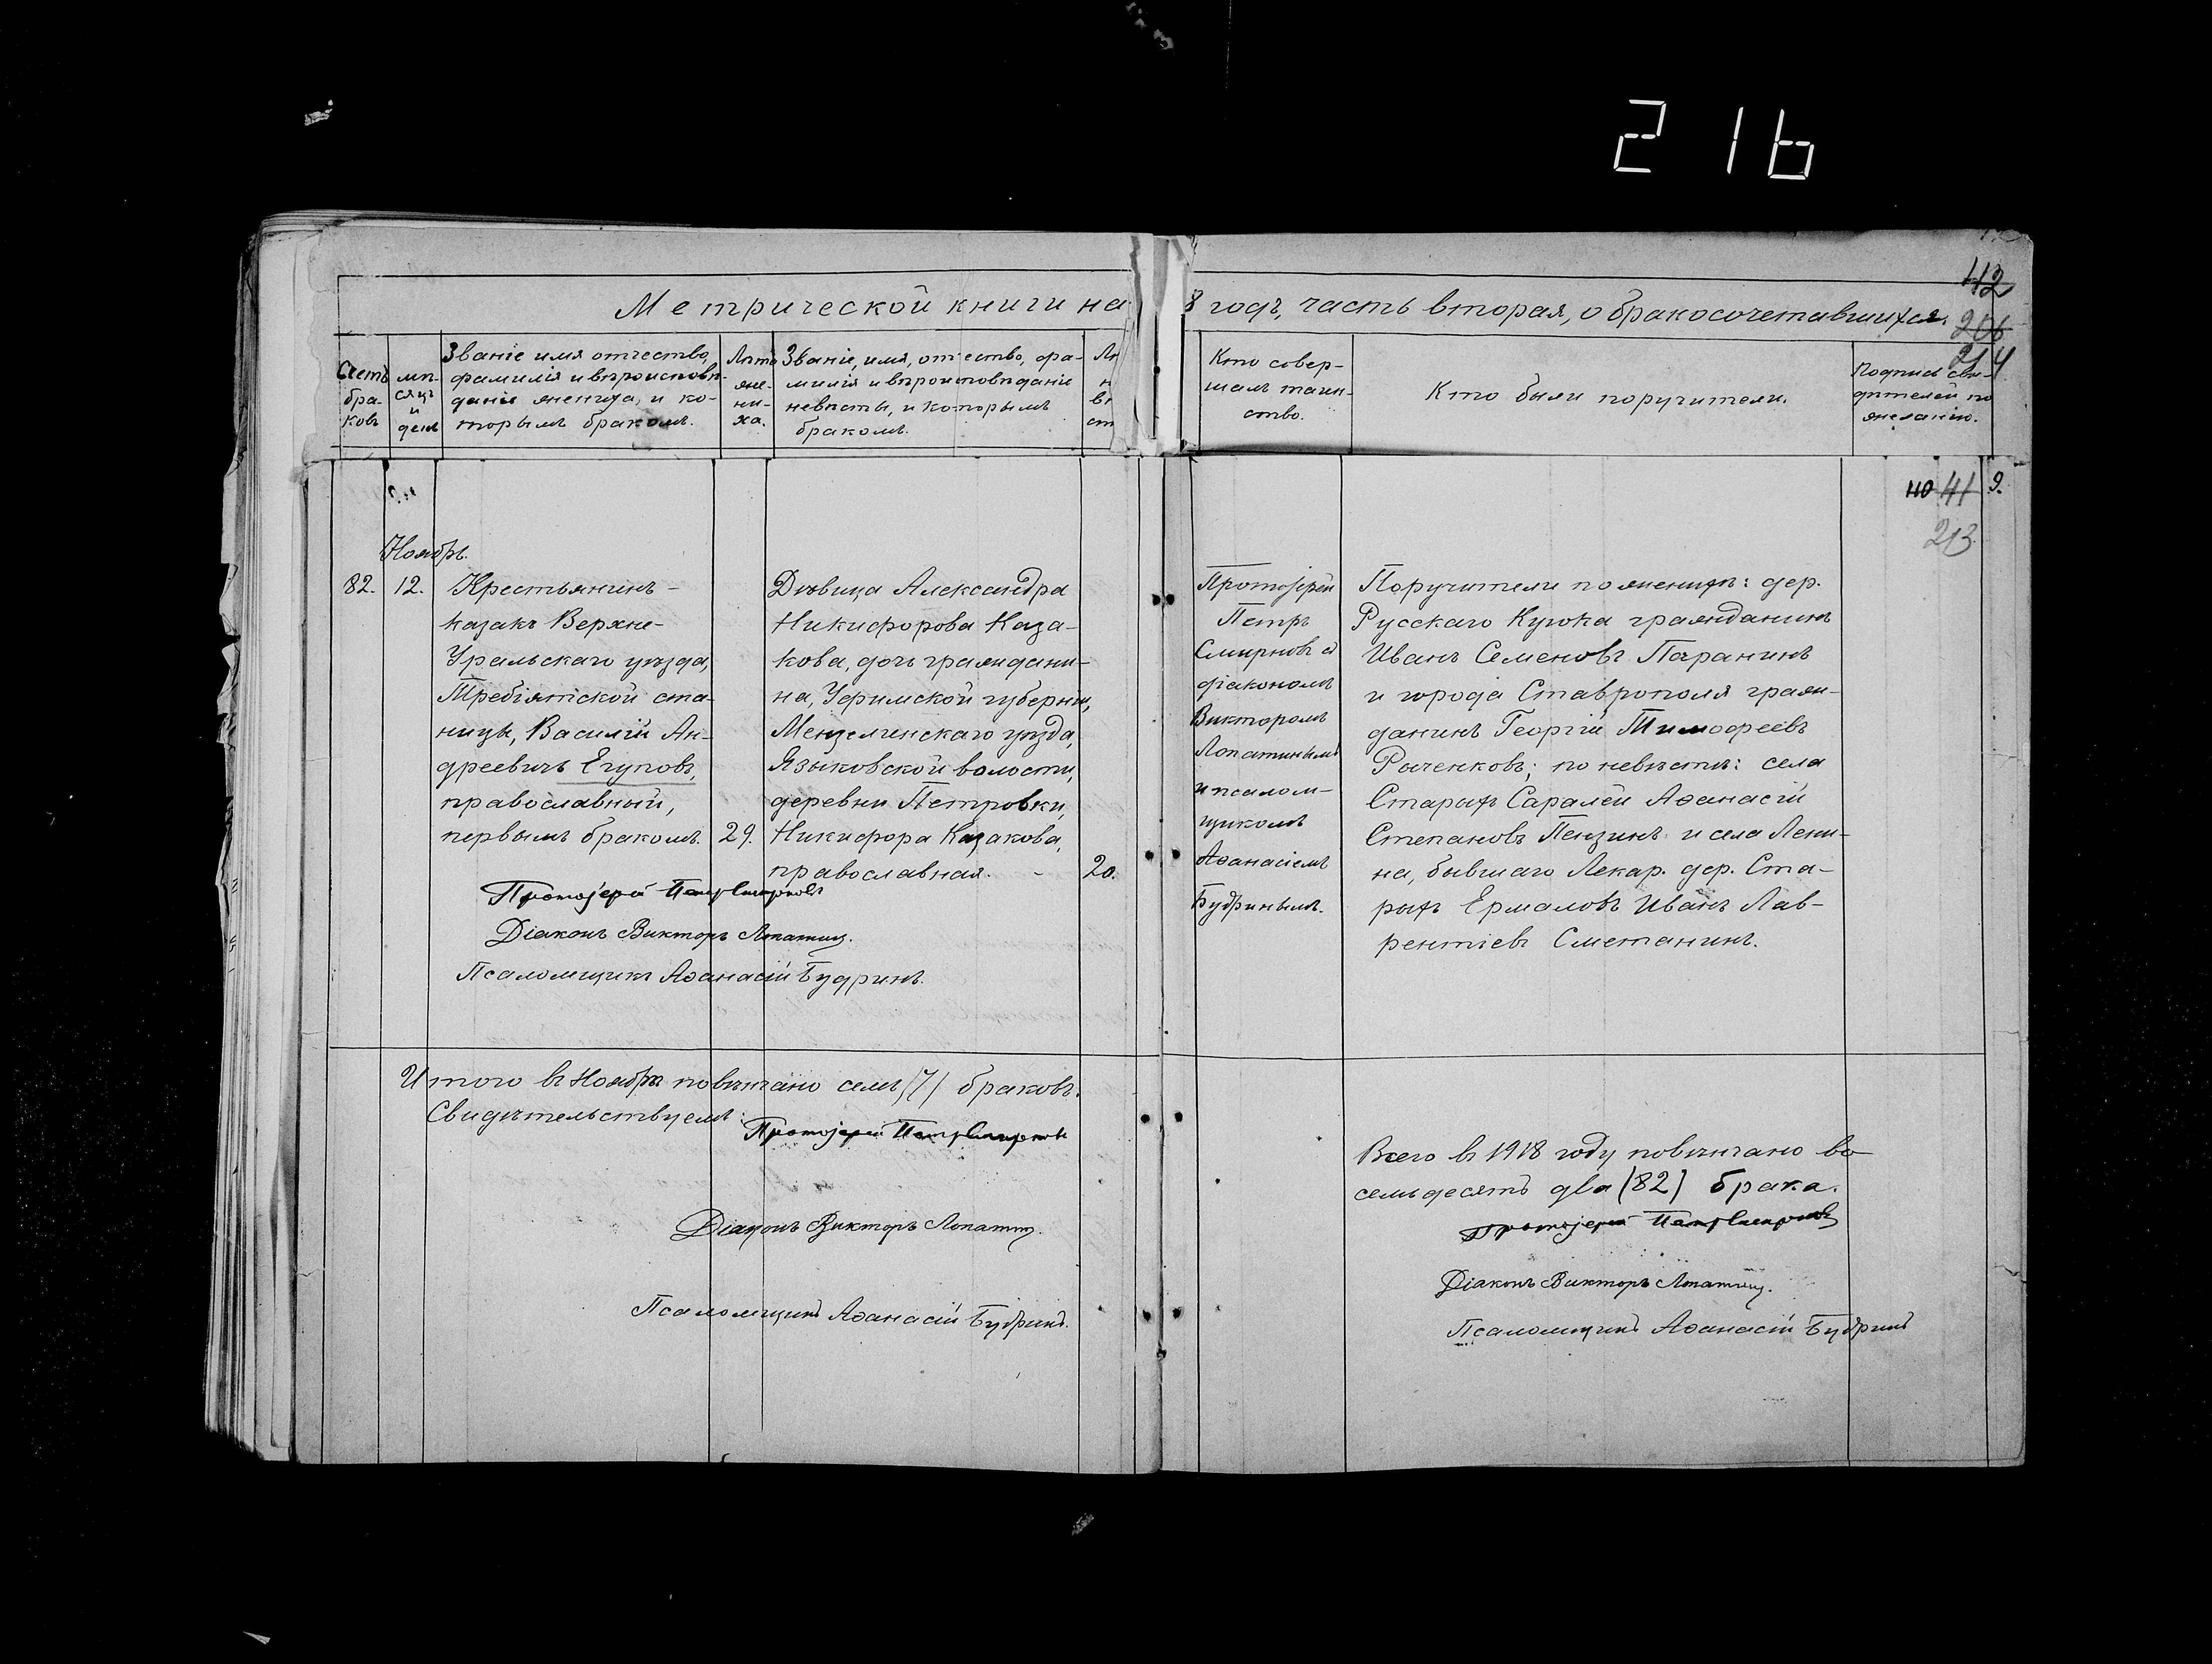 216
42
Метрической книги на
8 годъ, часть вторая, о бракосочетавшихся.
206
214
Счетъ браковъ
мѣсяцъ и день
Званіе имя отчество,
фамилія и вѣроисповѣ-
даніе жениха, и ко-
торымъ бракомъ.
Лѣта
же-
ни-
ха.
Званіе, имя, отчество, фа-
милія и вѣроисповѣданіе
невѣсты, и которымъ
бракомъ.
Кто совер-
шалъ таин-
ство.
Кто были поручители.
Подпись сви-
дѣтелей по
желанію.
40 41 9.
213
Ноябрь.
82. 12.
Крестьянинъ-
казакъ Верхне-
Уральскаго уѣзда,
Требіятской ста-
ницы, Василій Ан-
дреевичъ Егуповъ,
православный,
первымъ бракомъ. 29.
Дѣвица Александра
Никифорова Каза-
кова, дочь граждани-
на, Уфимской губерніи,
Мензелинскаго уѣзда,
Языковской волости,
деревни Петровки,
Никифора Казакова,
православная. - 20.
Протоіерей
Петръ
Смирновъ съ
діакономъ
Викторомъ
Лопатинымъ
и псалом-
щикомъ
Аѳанасіемъ
Будринымъ.
Поручители по женихѣ: дер.
Русскаго Куюка гражданинъ
Иванъ Семеновъ Паранинъ
и города Ставрополя граж-
данинъ Георгій Тимофеевъ
Рыченковъ; по невѣстѣ: села
Старыхъ Саралей Аѳанасій
Степановъ Пензинъ и села Лени-
на, бывшаго Лекар. дер. Ста-
рыхъ Ермаловъ Иванъ Лав-
рентіевъ Сметанинъ.
Протоіерей Петръ Смирновъ
Діаконъ Викторъ Лопатинъ.
Псаломщикъ Аѳанасій Будринъ.
Итого въ Ноябрѣ повѣнчано семь (7) браковъ.
Свидѣтельствуемъ:
Протоіерей Петръ Смирновъ
Діаконъ Викторъ Лопатинъ.
Псаломщикъ Аѳанасій Будринъ.
Всего въ 1918 году повѣнчано во-
семьдесятъ два (82) брака.
Протоіерей Петръ Смирновъ
Діаконъ Викторъ Лопатинъ.
Псаломщикъ Аѳанасій Будринъ